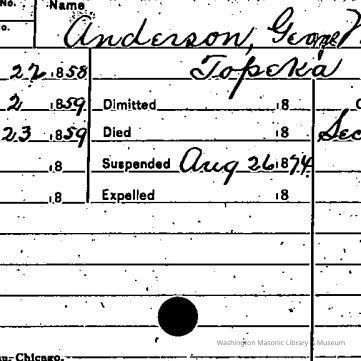 No. Name
o. Anderson, George
22 1858 Topeka
2 1859 Dimitted 18
23 1859 Died 18 Sec
18 Suspended Aug 26 1874
18 Expelled 18
Washington Masonic Library & Museum
Chicago.